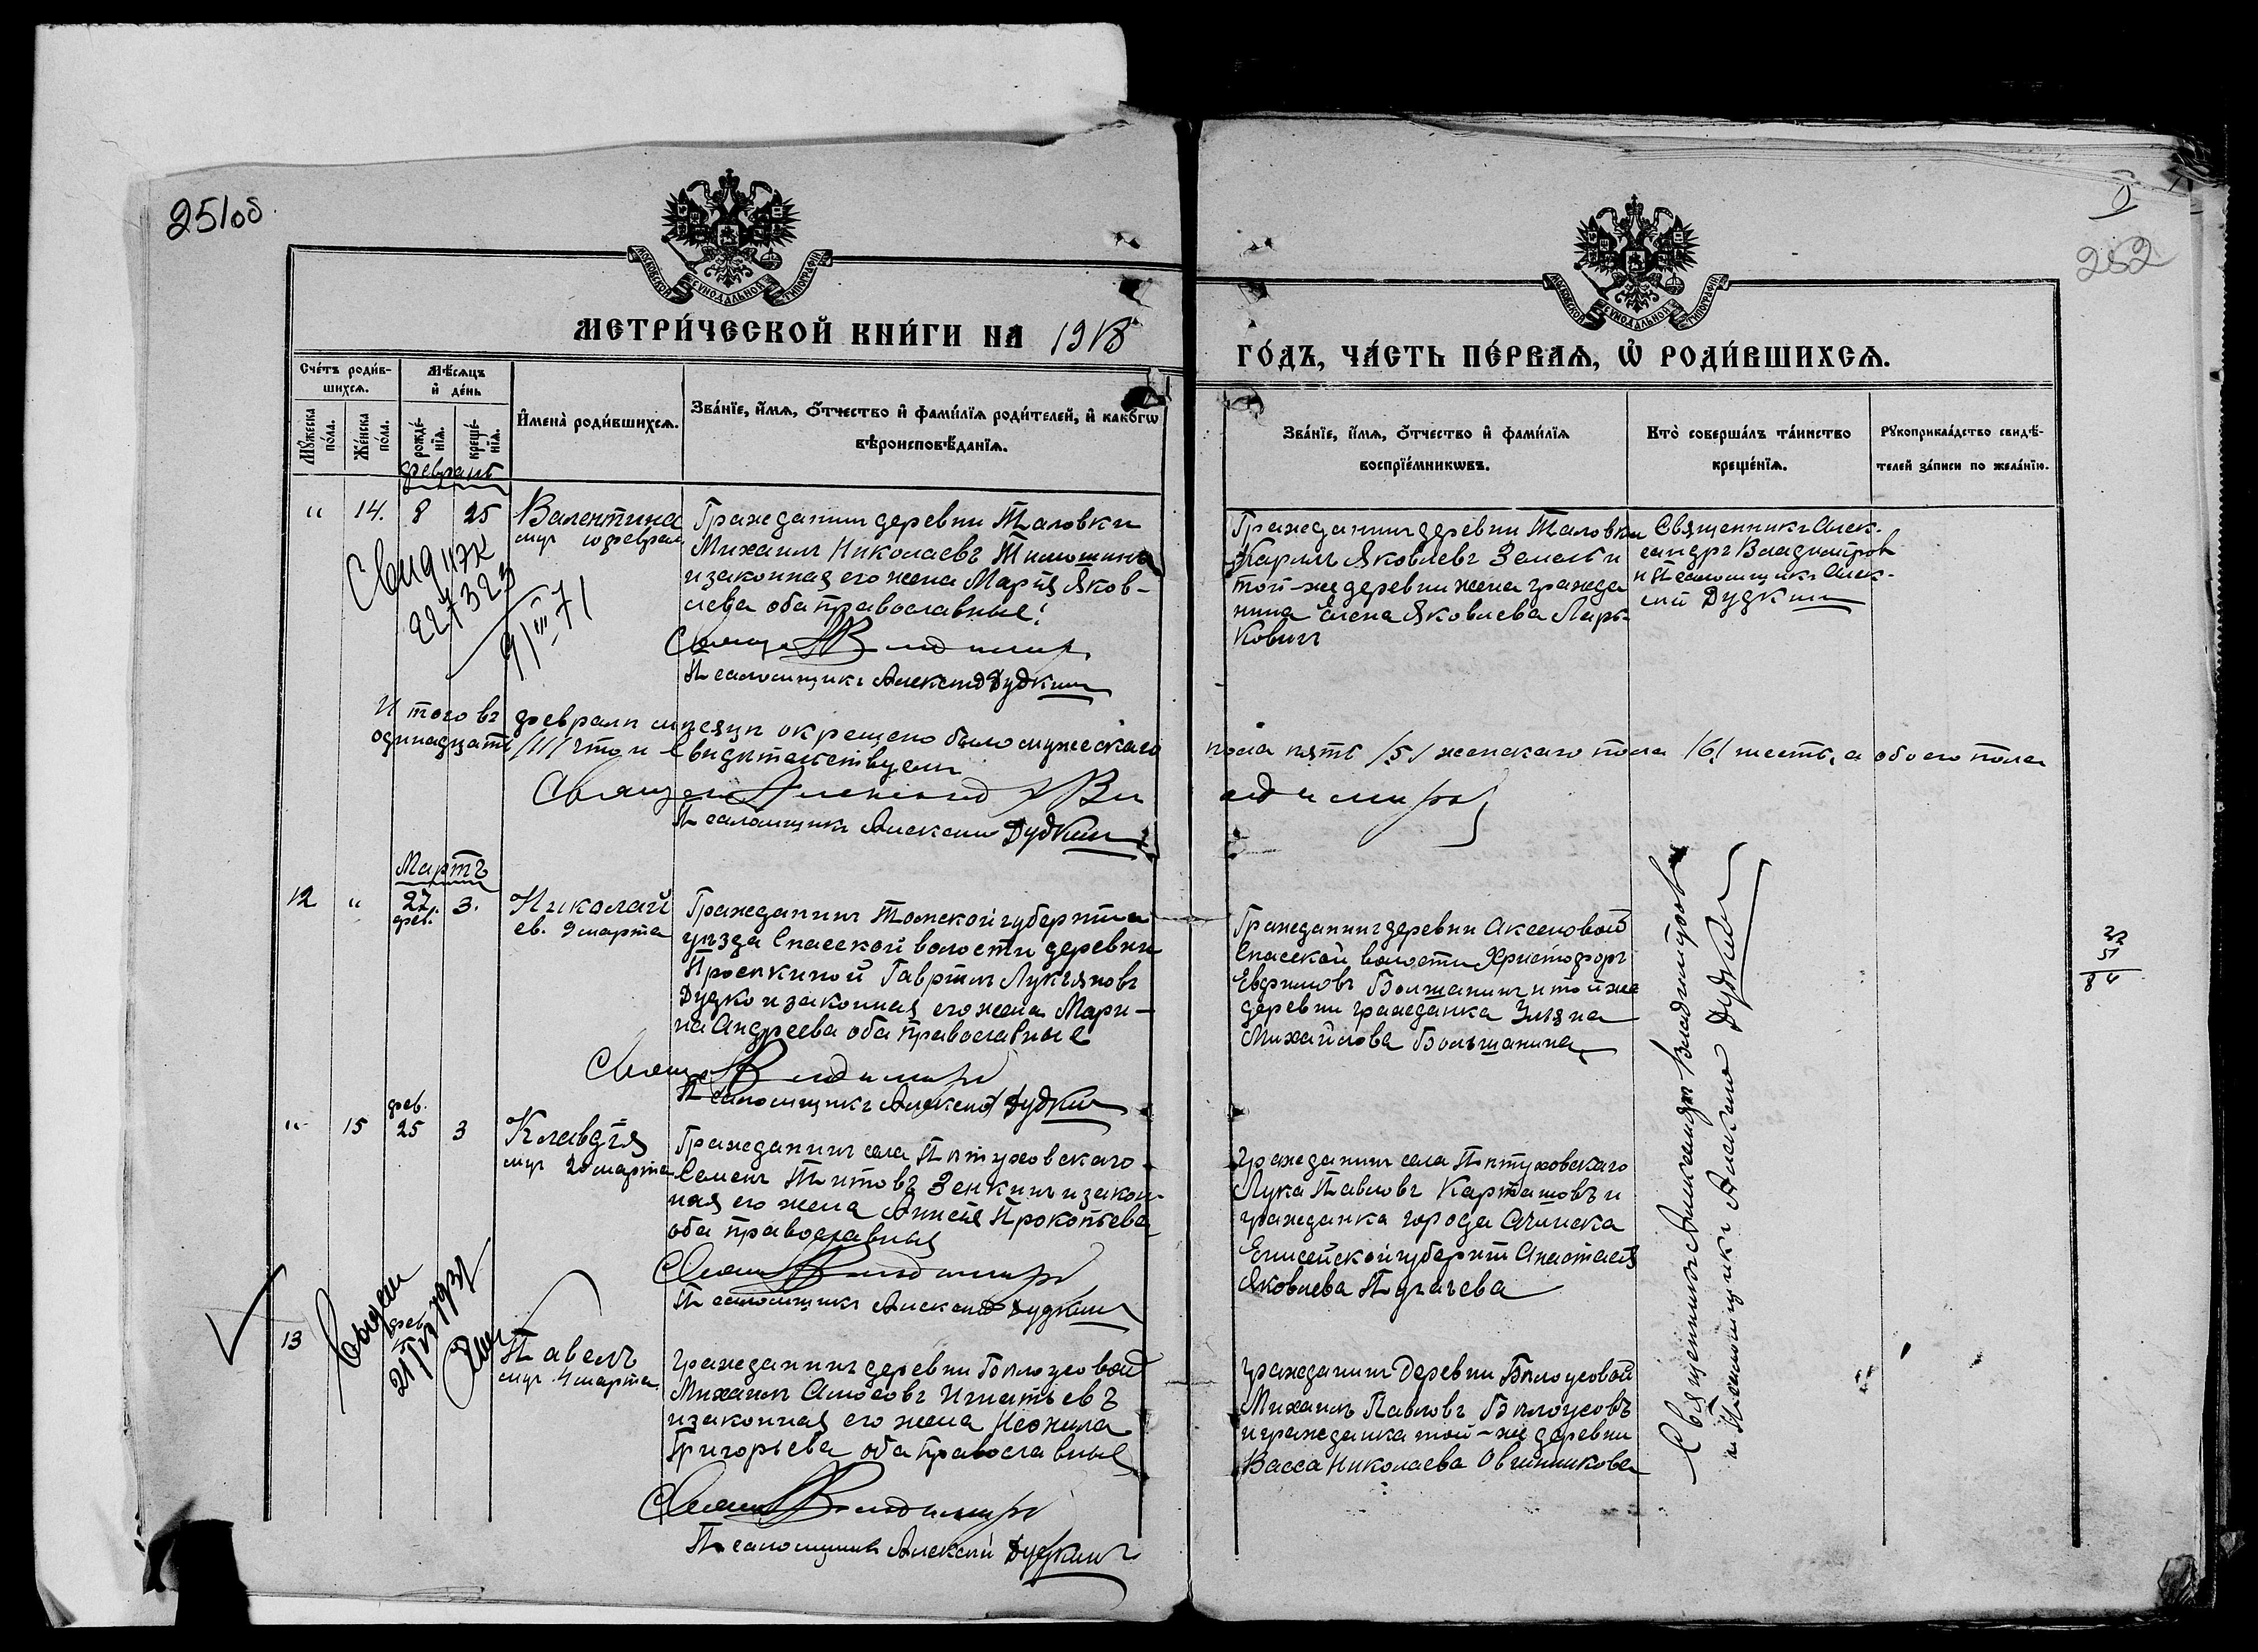 251об
252
МОСКОВСКОЙ СѴНОДАЛЬНОЙ ТИПОГРАФІИ
МОСКОВСКОЙ СѴНОДАЛЬНОЙ ТИПОГРАФІИ
МЕТРИ́ЧЕСКОЙ КНИ́ГИ НА 1918
ГО́ДЪ, ЧА́СТЬ ПЕ́РВАѦ, Ѡ҆ РОДИ́ВШИХСѦ.
Сче́тъ роди́в-
шихсѧ.
Мѣ́сѧцъ
и҆ де́нь
Мꙋ́жеска по́ла.
Же́нска по́ла.
рожде́-нїѧ.
креще́-нїѧ.
И҆мена̀ роди́вшихсѧ.
Зва́нїе, и҆́мѧ, ѻ҆́тчество и҆ фами́лїѧ роди́телей, и҆ како́гѡ
вѣроисповѣ́данїѧ.
Зва́нїе, и҆́мѧ, ѻ҆́тчество и҆ фами́лїѧ
воспрїе́мникѡвъ.
Кто̀ соверша́лъ та́инство
креще́нїѧ.
Рꙋкоприкла́дство свидѣ́-
телей за́писи по жела́нїю.
февраль
" 14. 8 25 Валентина
муч 10 феврал
Гражданинъ деревни Таловки
Михаилъ Николаевъ Тимошинъ
и законная его жена Марія Яков-
лева оба православные.
Священ Владимиров
Псаломщикъ Алексей Дудкин
Гражданинъ деревни Таловки
Карпъ Яковлевъ и
той-же деревни жена гражда
нина Елена Яковлева Ларь-
ковичъ
Священникъ Алек-
сандръ Владиміров
и Псаломщикъ Алек-
сей Дудкин
Свид
227323
9/III 71
Итого въ феврале месяце окрещено было мужескаго пола пять /5/ женскаго пола /6/ шесть, а обоего пола
одинадцать /11/ что и свидетельствуем
Священ Александ Владимиров
Псаломщикъ Алексей Дудкин
Мартъ
12 " 27. фев. 3. Николай
св. 9 марта
Гражданинъ Томской губерніи
уезда Спасской волости деревни
Проскиной Гавріилъ Лукьяновъ
Дудко и законная его жена Мари-
на Андреева оба православные
Священ Владимиров
Псаломщикъ Алексей Дудкин
Гражданинъ деревни Аксеновой
Спасской волости Христофоръ
Евфимовъ Болшанинъ и той же
деревни гражданка
Михайлова Большанина
22
84
" 15 фев. 25 3 Клавдія
муч 20 марта
Гражданинъ села Петуховскаго
Семенъ Титовъ Зенкинъ и закон-
ная его жена Анисія Прокопьева
оба православныя
Священ Владимиров
Псаломщикъ Алексей Дудкин
Гражданинъ села Петуховскаго
Лука Павловъ Карташовъ и
гражданка города Ачинска
Енисейской губерніи Анастасія
Яковлева Пугачева
Священникъ Александръ Владиміровъ
и Псаломщикъ Алексей Дудкин
13
фев.
Павелъ
муч 4 марта
Гражданинъ деревни Белоусовой
Михаилъ Амосовъ Игнатьевъ
и законная его жена Неонила
Григорьева оба православные
Священ Владимиров
Псаломщикъ Алексей Дудкинъ
Гражданинъ деревни Белоусовой
Михаилъ Павловъ Белоусовъ
и гражданка той-же деревни
Васса Николаева Овчинникова